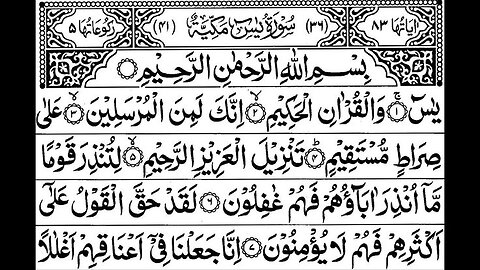 اٰیَاتُهَا ۸۳ (۳۶) سُوْرَةُ یٰسٓ مَكِّيَّةٌ (۴۱) رُكُوْعَاتُهَا ۵
بِسْمِ اللّٰهِ الرَّحْمٰنِ الرَّحِيْمِ
يٰسٓ ۚ‏﴿۱﴾ وَالْقُرْاٰنِ الْحَكِيْمِ ۙ‏﴿۲﴾ اِنَّكَ لَمِنَ الْمُرْسَلِيْنَ ۙ‏﴿۳﴾ عَلٰى
صِرَاطٍ مُّسْتَقِيْمٍ ؕ‏﴿۴﴾ تَنْزِيْلَ الْعَزِيْزِ الرَّحِيْمِ ۙ‏﴿۵﴾ لِتُنْذِرَ قَوْمًا
مَّاۤ اُنْذِرَ اٰبَآؤُهُمْ فَهُمْ غٰفِلُوْنَ ﴿۶﴾ لَقَدْ حَقَّ الْقَوْلُ عَلٰٓى
اَكْثَرِهِمْ فَهُمْ لَا يُؤْمِنُوْنَ ﴿۷﴾ اِنَّا جَعَلْنَا فِيْۤ اَعْنَاقِهِمْ اَغْلٰلًا